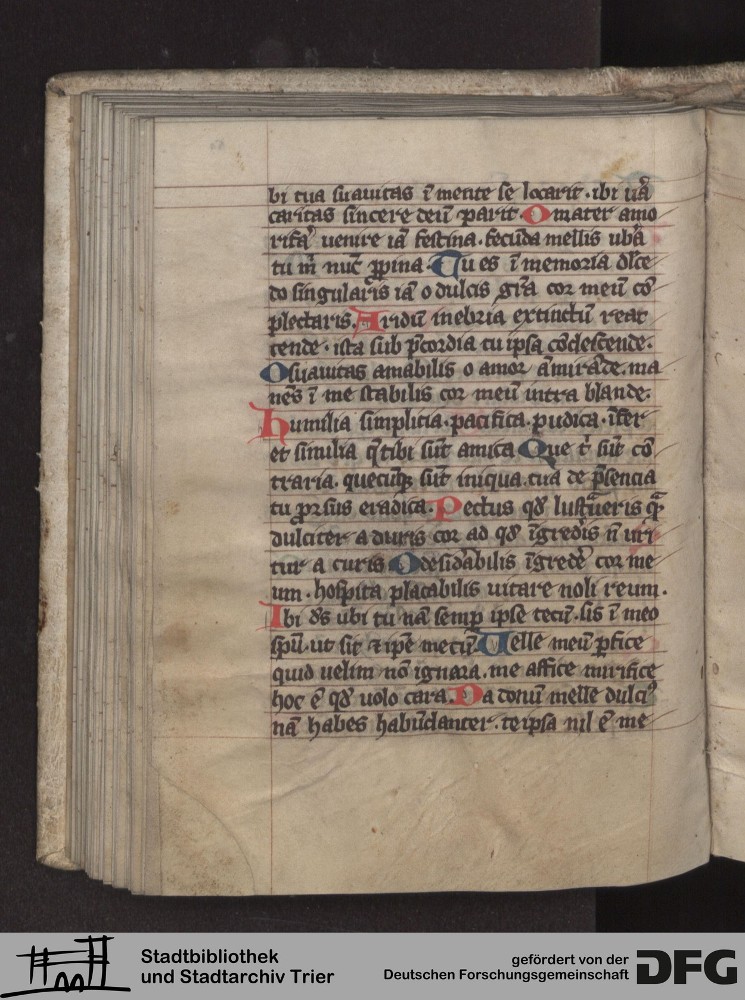 bi tua suauitas ī mente se locarit · ibi uā
caritas sincere deū parit · O mater amo
rifā uenire iā festina · fecūda mellis ubā
tu m̄ nūc ꝓpina · Tu es ī memoria dl̄ce
do singularis iā o dulcis gr̄a cor meū cō
plectaris. Aridū inebria extinctū reac
cende · ista sub p̄cordia tu ipsa cōdescende.
O suauitas amabilis o amor āmirāde. ma
nēs ī me stabilis cor meū intra blande.
Humilia simplicia · pacifica · pudica · īfer
et similia q̄ tibi sūt amica Que t̄ sūt cō
traria. quecūqꝫ sūt iniqua. tua de p̄sencia
tu ꝓrsus eradica. Pectus qd̄
dulciter a duris cor ad qd̄ īgredīs n̄ uri
tur a curis O desid̄abilis īgredē cor me
um · hospita placabilis uitare noli reum.
Ibi ds̄ ubi tu nā semꝑ ipse tecū. sis ī meo
sp̄u · ut sit ⁊ ip̄e mecū. Uelle meū ꝑfice
quid uelim nō ignara. me affice mirifice
hoc ē qd̄ uolo cara. Da tonū melle dulciꝰ
nā habes habūdanter. te ipsa nil ē me
Stadtbibliothek
und Stadtarchiv Trier
gefördert von der
Deutschen Forschungsgemeinschaft
DFG